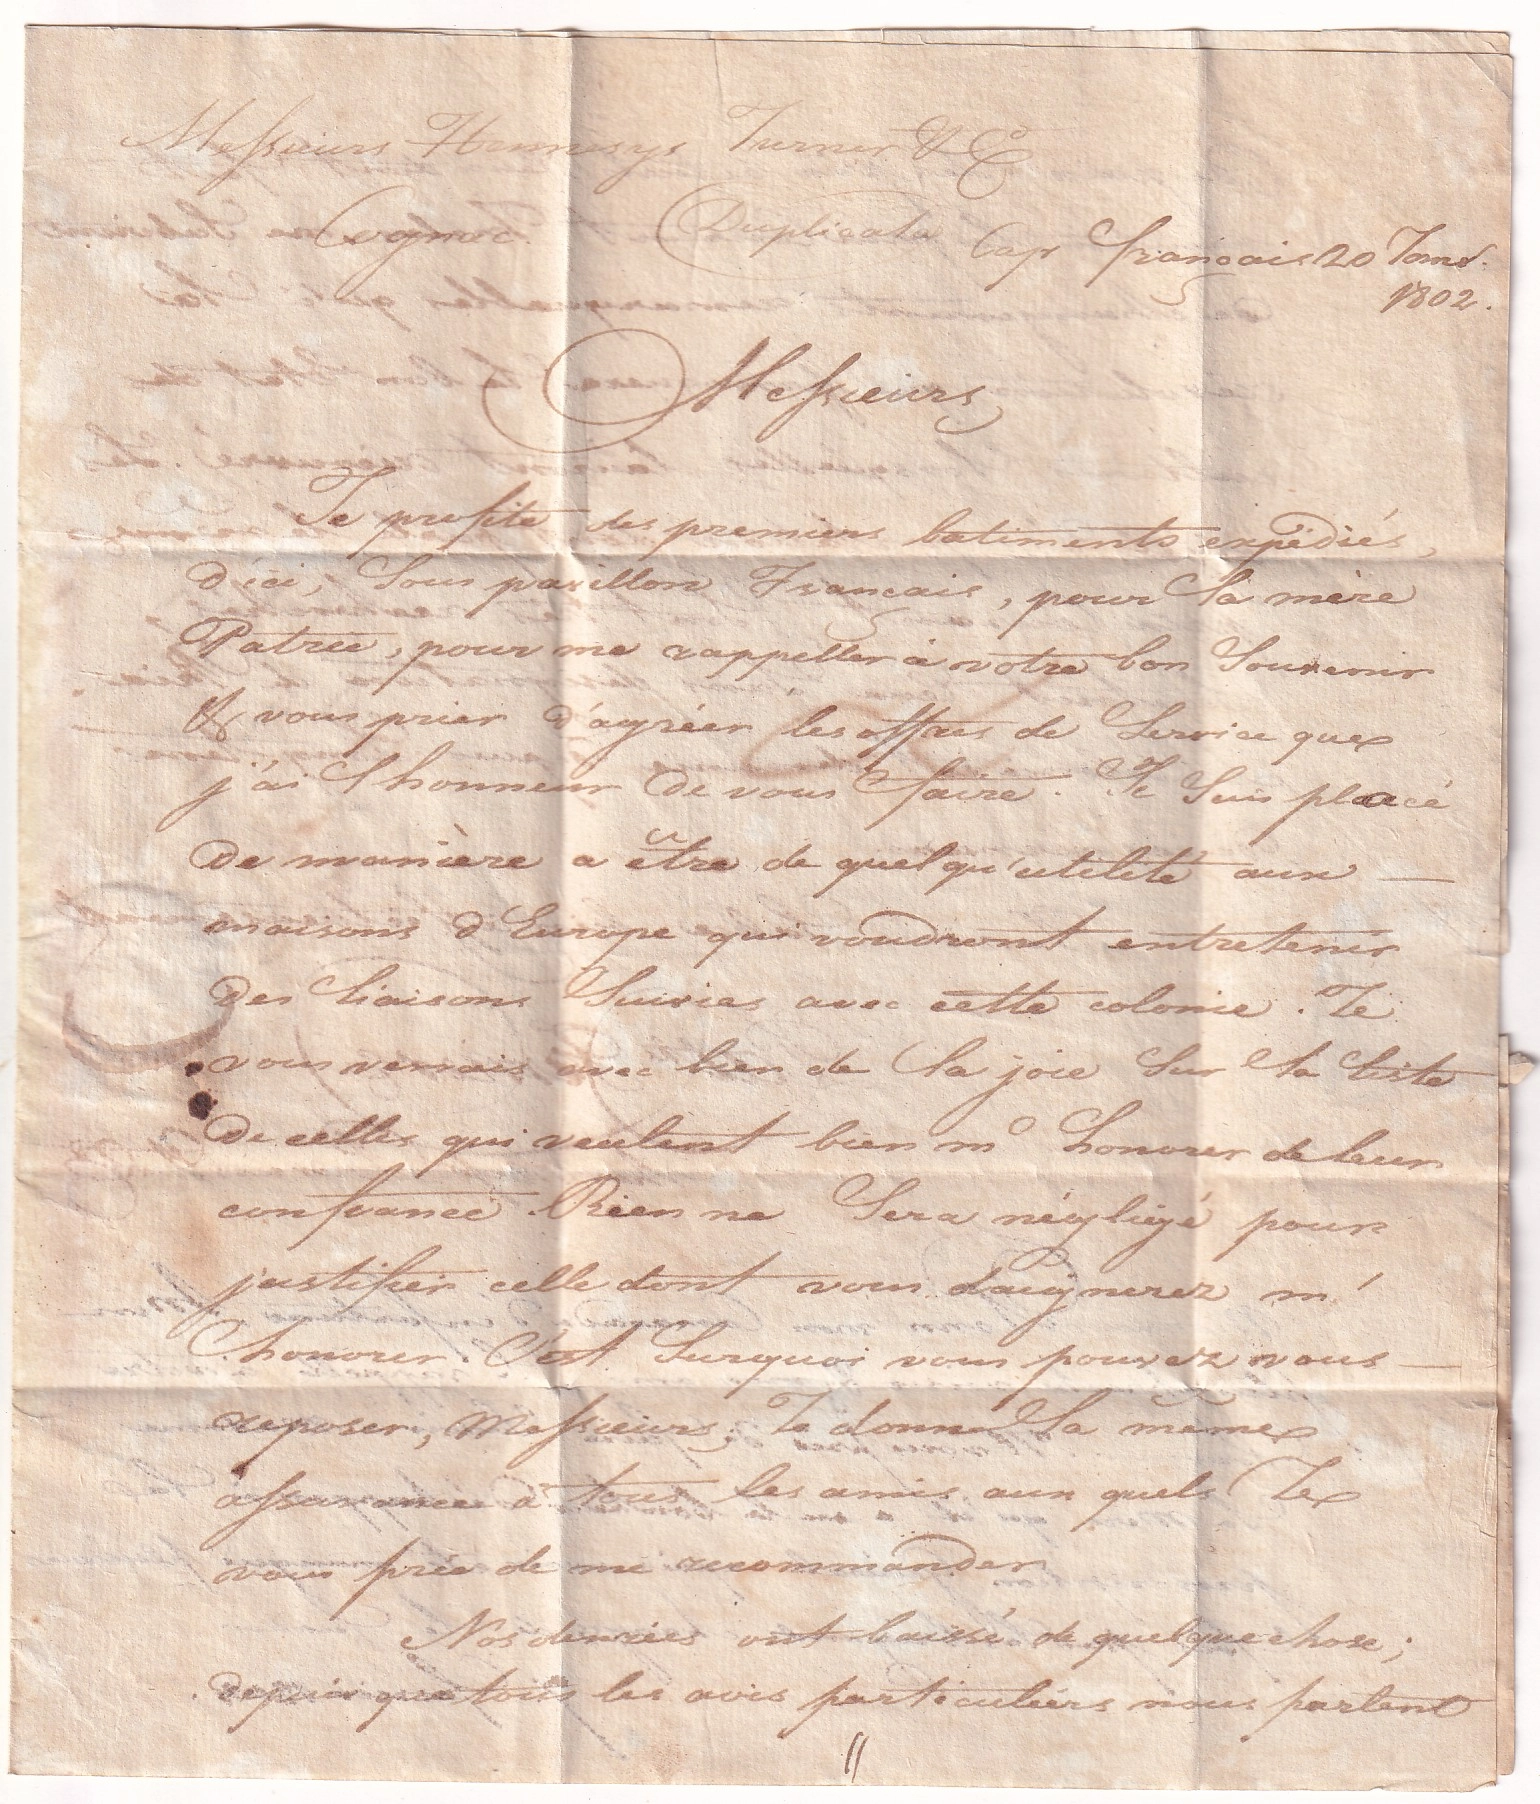 Messieurs Hennesys Turner & Co
Cognac.
Duplicata
Cap français 20
1802.
Messieurs,
Je profite des premiers batiments expédiés,
d'ici, Sous pavillon Français, pour la mère
Patrie, pour me rappeller à votre bon Souvenir
& vous prier d'agréer les offres de Service que
j'ai l'honneur de vous faire. Je Suis placé
de manière a être de quelqu'utilité aux —
maisons d'Europe qui voudront entretenir
des liaisons Suivies avec cette colonie. Je
vous verrais avec bien de la joie Sur la liste
de celles qui veulent bien m' honorer de leur
confiance. Rien ne Sera négligé pour
justifier celle dont vous daignerez m'
honorer. C'est Surquoi vous pouvez vous —
reposer, Messieurs; Je donne la même
assurance à tous les amis aux quels Je
vous prie de me recommander
Nos denrées ont baissé de quelque chose;
depuis que tous les avis particuliers nous parlent